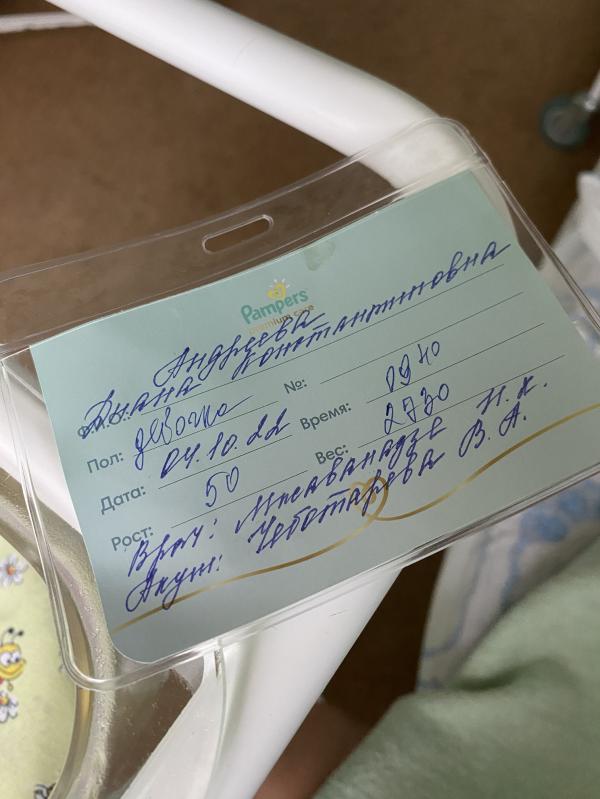 Pampers
premium care
Андреева
Ф.И.О.: Диана Константиновна
Пол: девочка №:
Дата: 04.10.22 Время: 0940
Рост: 50 Вес: 2770
Врач: Мжаванадзе Н.Х.
Акуш: Чеботарева В.А.